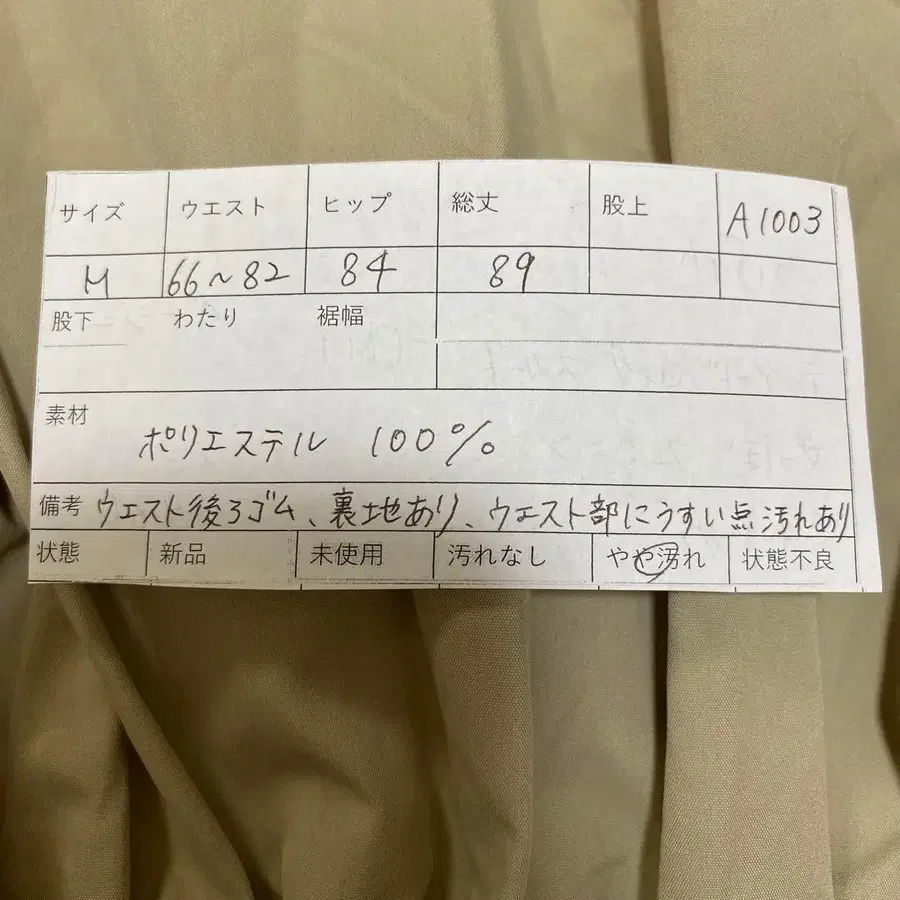 サイズ ウエスト ヒップ 総丈 股上 A1003
M 66~82 84 89
股下 わたり 裾幅
素材
ポリエステル 100%
備考 ウエスト後ろゴム、裏地あり、ウエスト部にうすい点汚れあり
状態 新品 未使用 汚れなし やや汚れ 状態不良